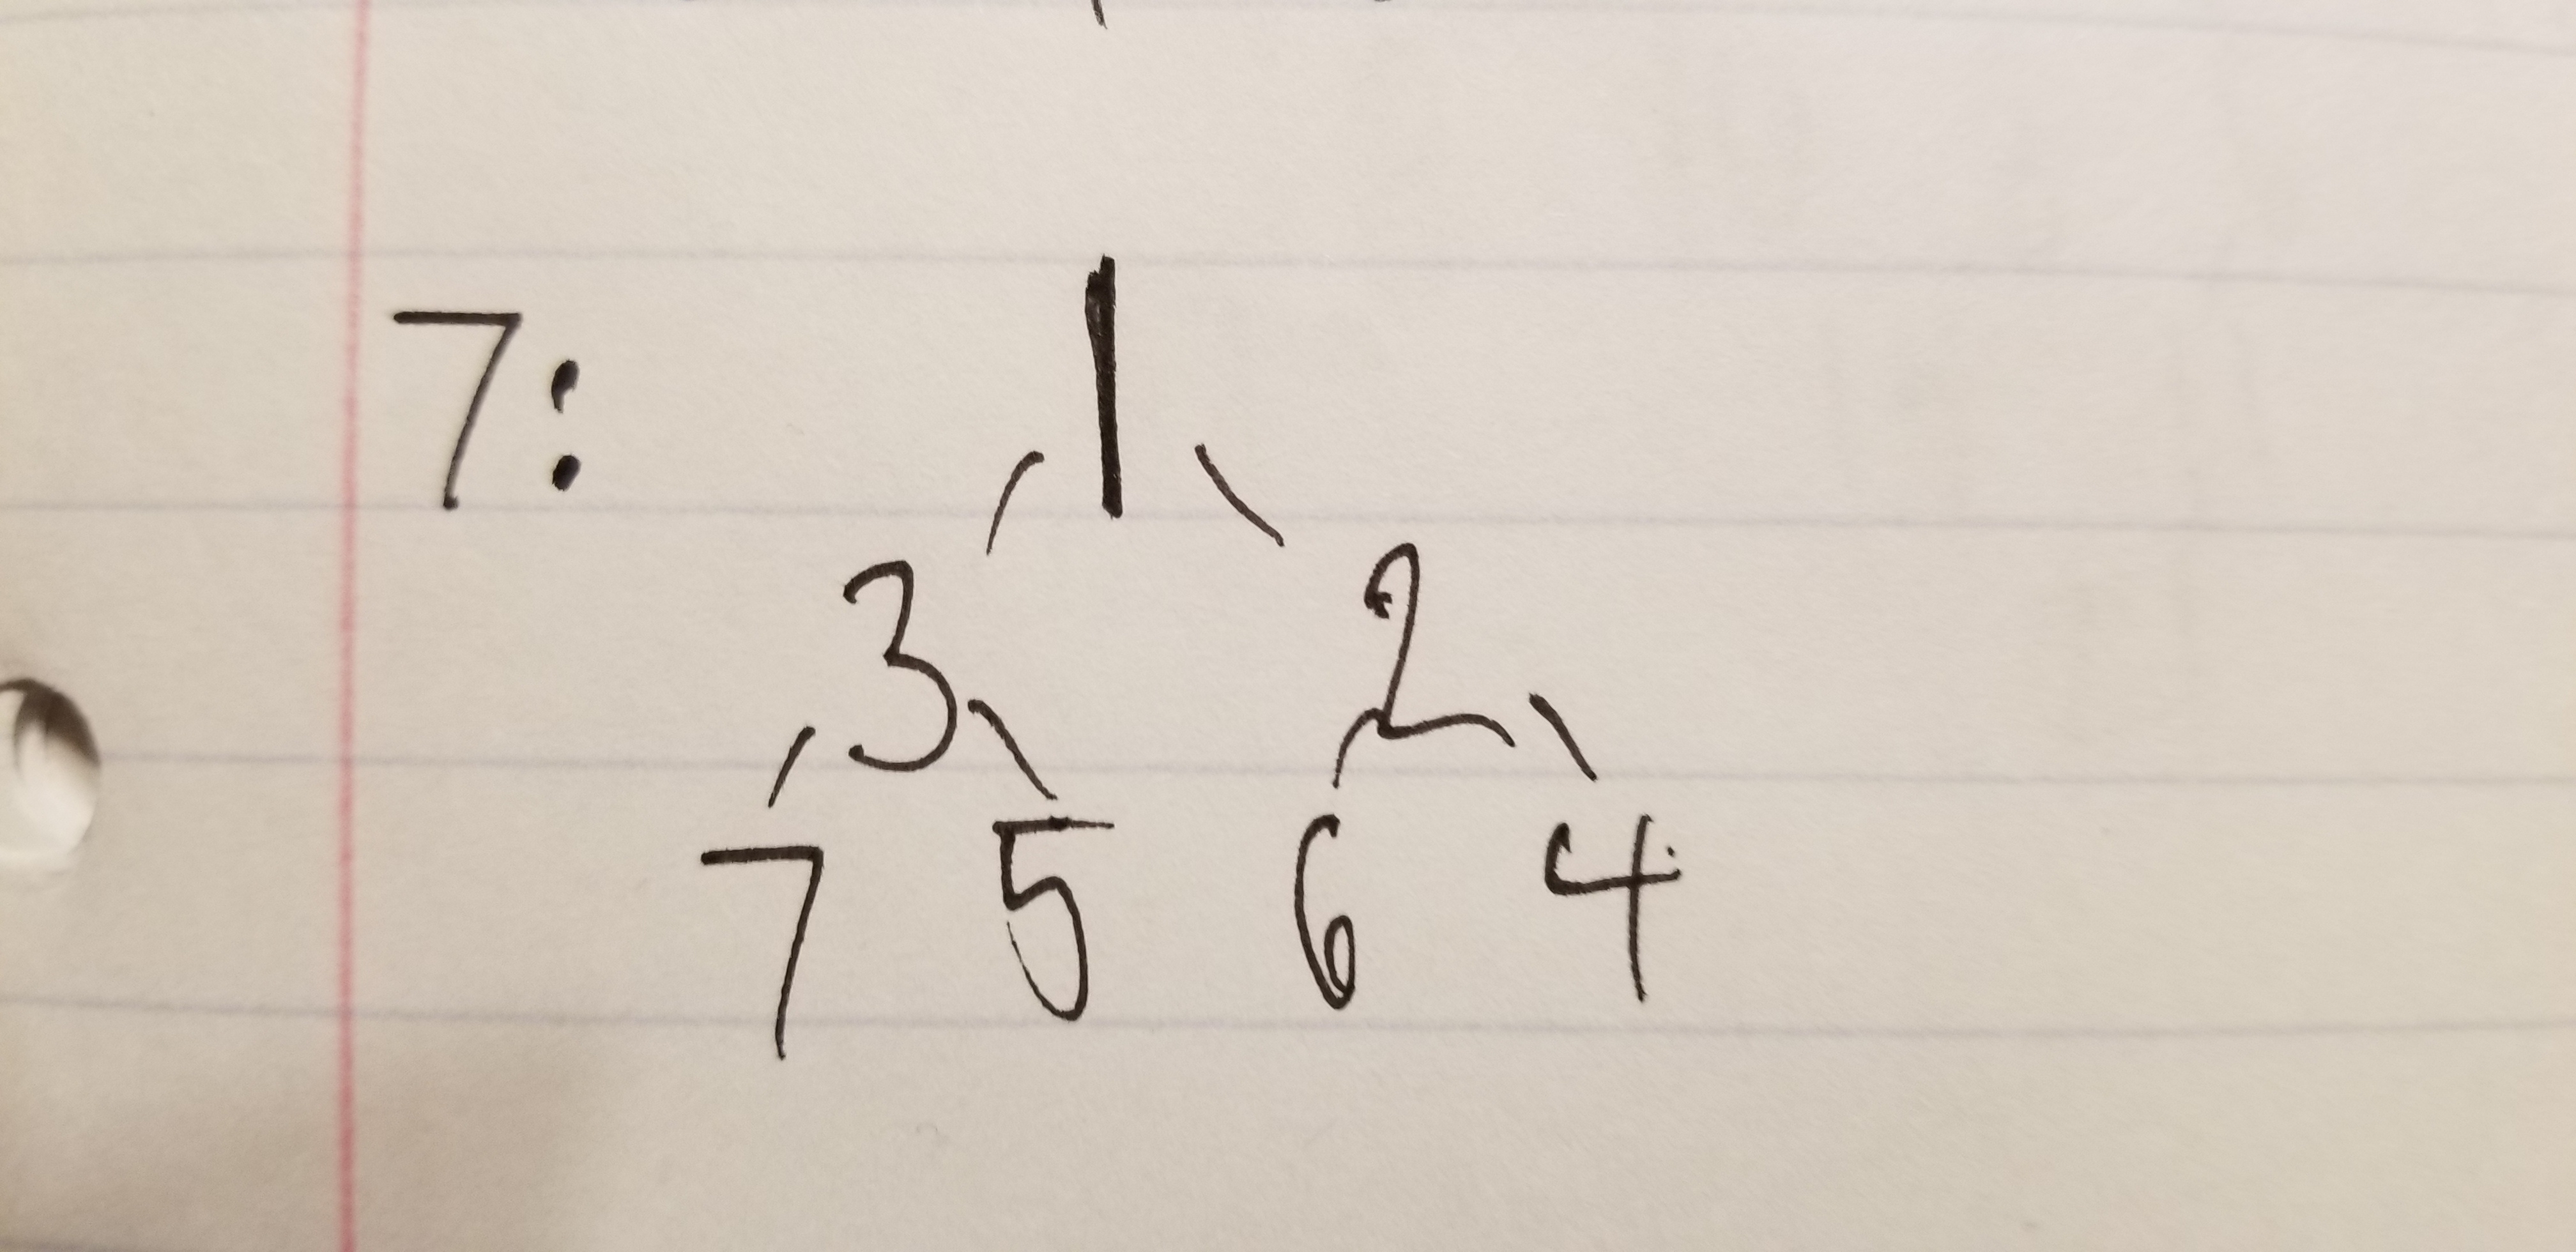 7: 1
3 2
7 5 6 4